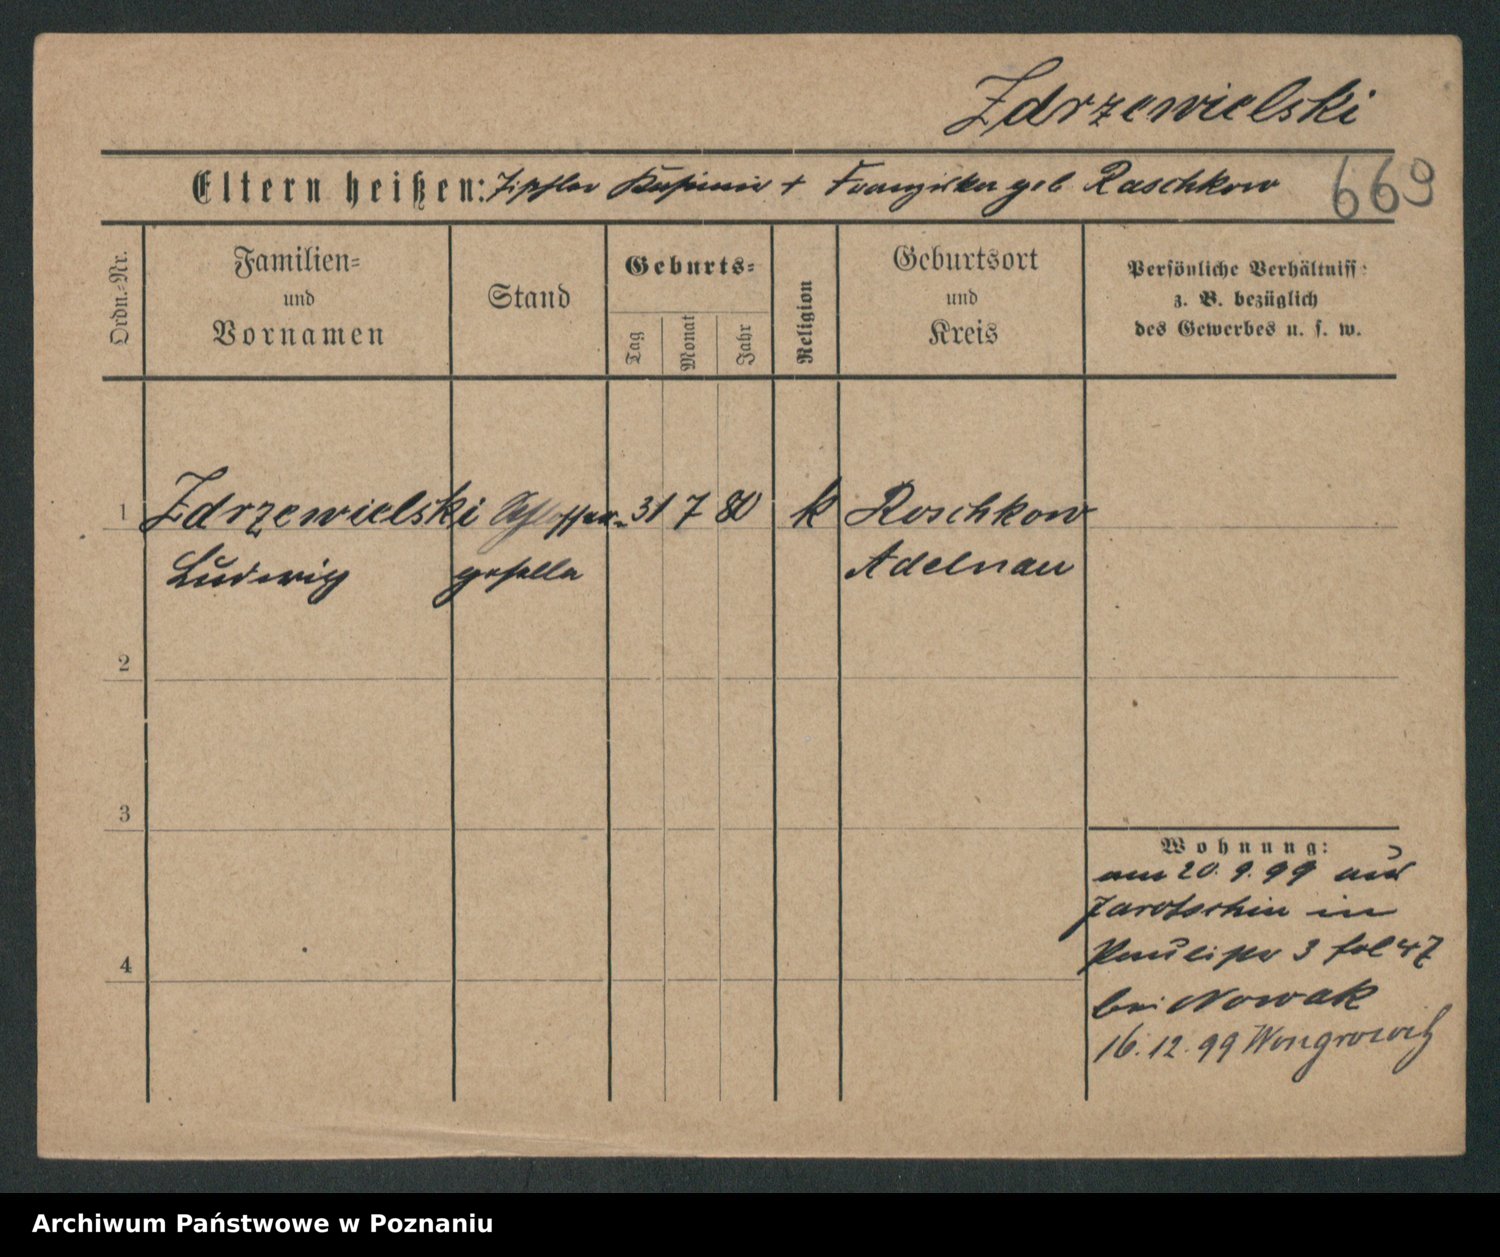 Zdrzewielski
Eltern heißen: Kasimir + Franziska geb Raschkow
669
Ordn.-Nr.
Familien-
und
Vornamen
Stand
Geburts-
Tag
Monat
Jahr
Religion
Geburtsort
und
Kreis
Persönliche Verhältniss
z. B. bezüglich
des Gewerbes u. s. w.
1 Zdrzewielski Schlosser- 31 7 80 k Roschkow
Ludwig geselle Adelnau
2
3
4
Wohnung:
am 20. 9. 99 aus
Jarotschin in
3 bei Nowak
16. 12. 99 Wongrowitz
Archiwum Państwowe w Poznaniu